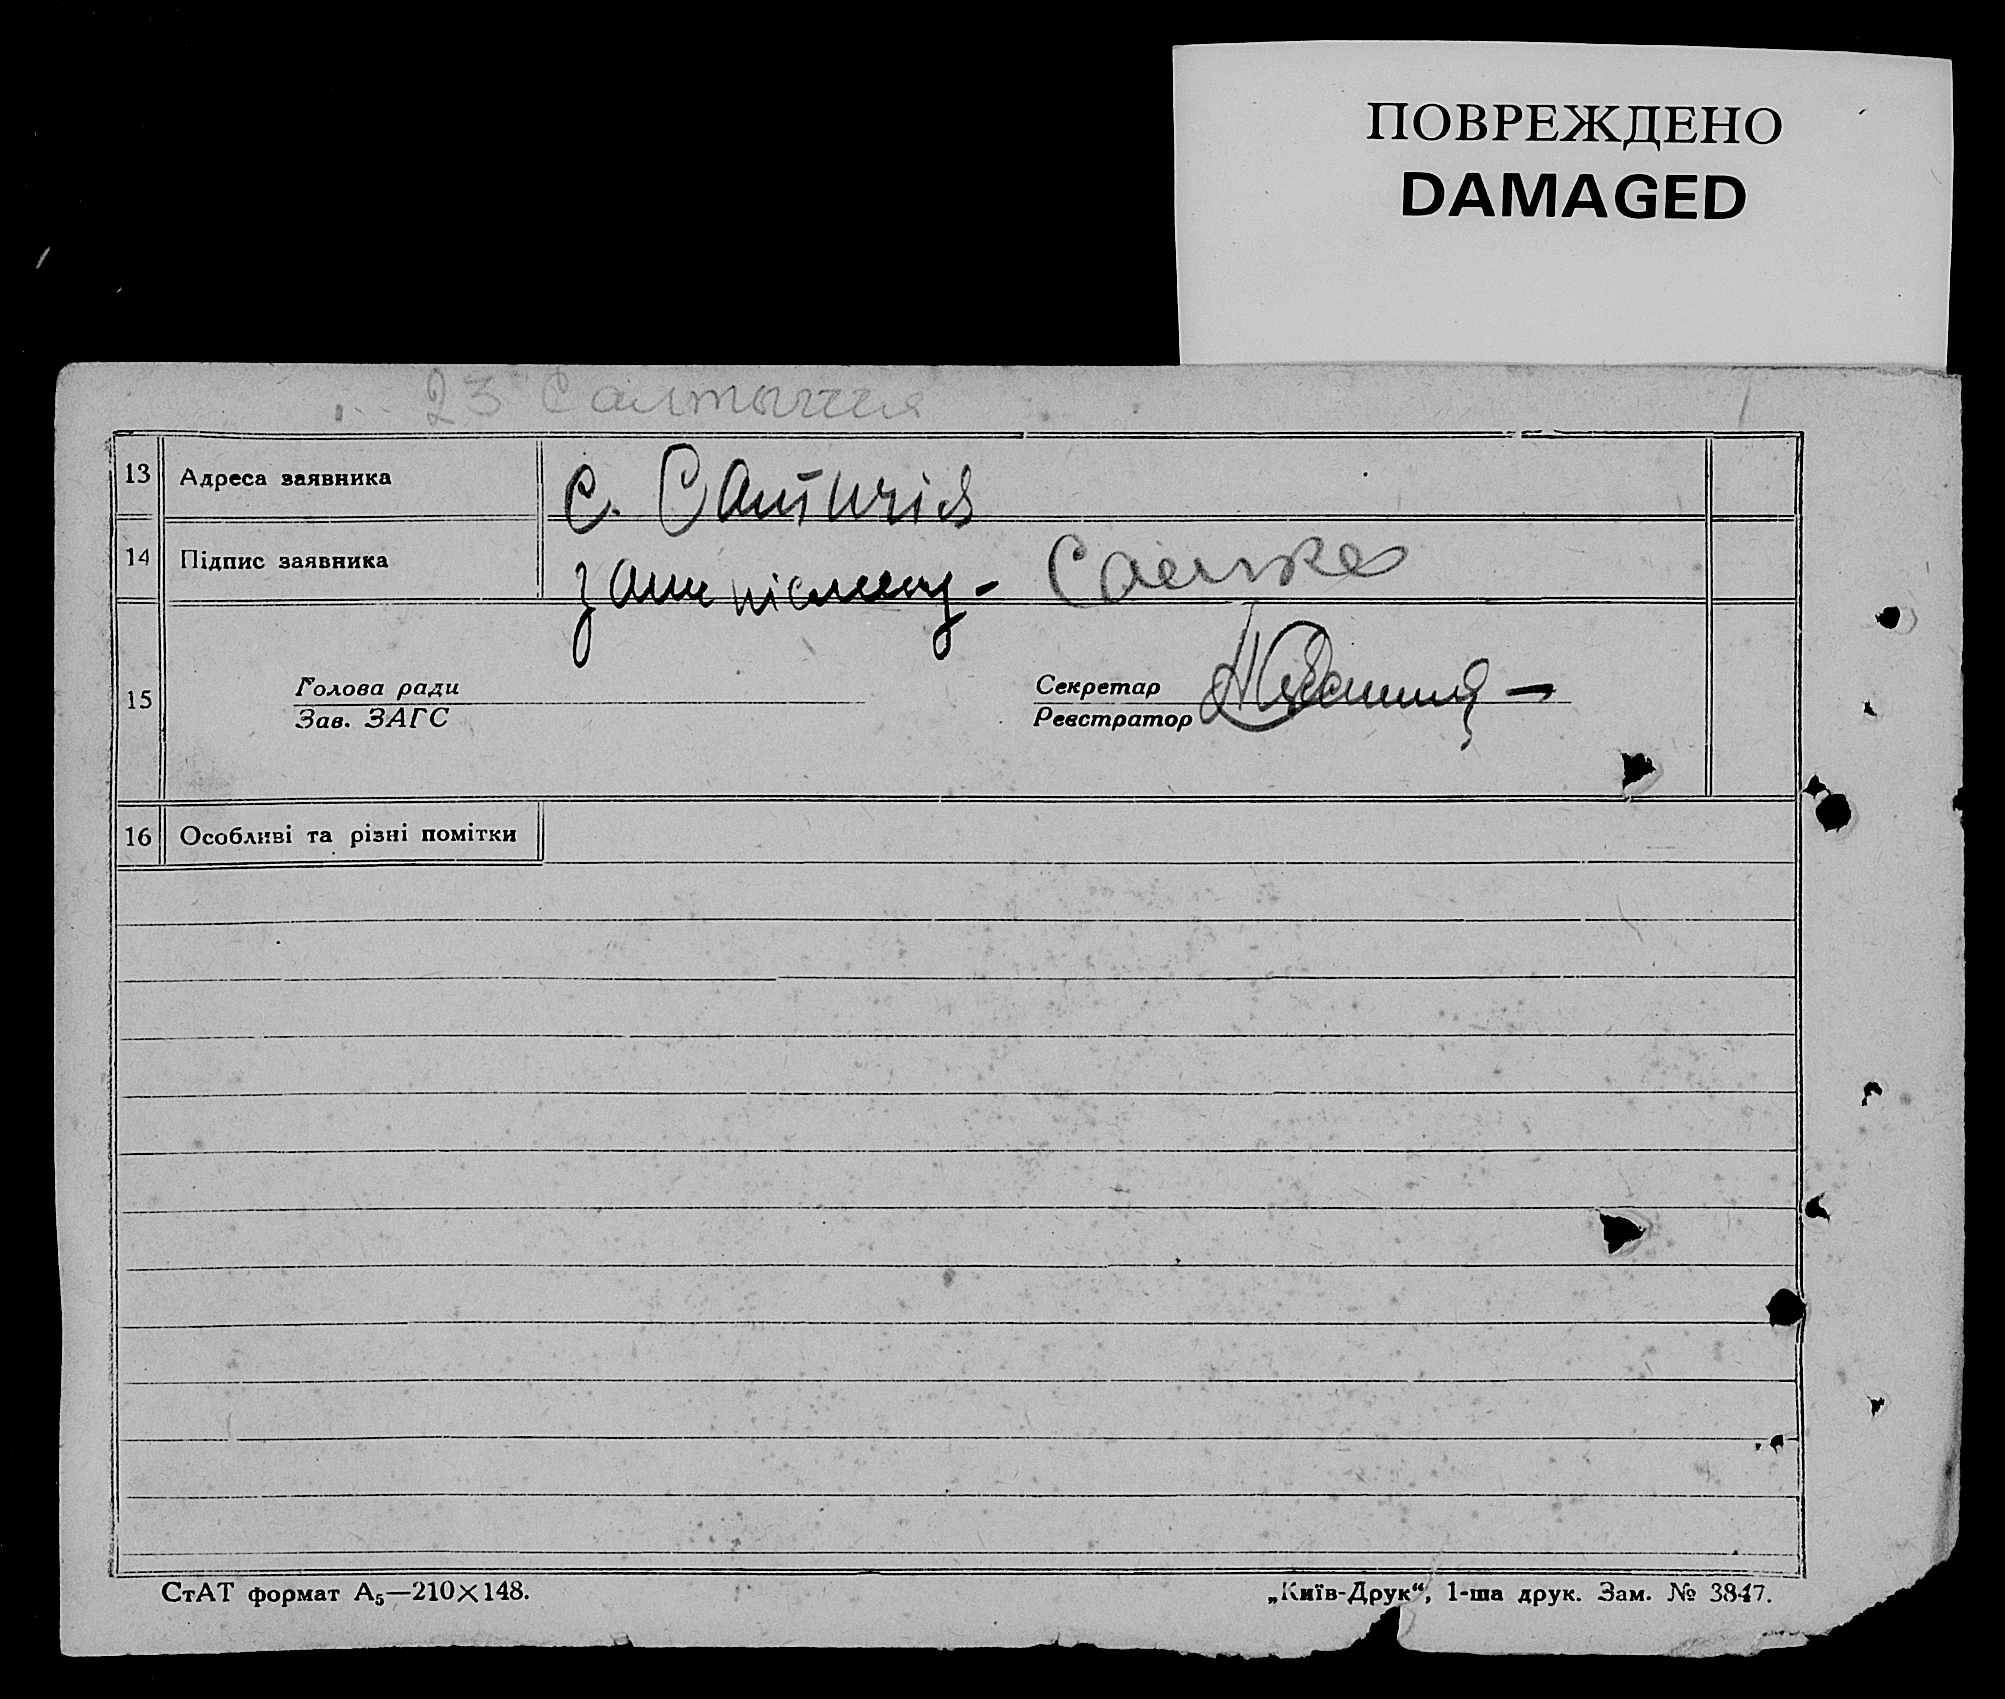 ПОВРЕЖДЕНО
DAMAGED
23 Салтычия
13 Адреса заявника с. Салтичія
14 Підпис заявника
15 Голова ради Секретар
Зав. ЗАГС Реєстратор
16 Особливі та різні помітки
СтАТ формат А₅—210×148. „Київ-Друк“, 1-ша друк. Зам. № 3847.